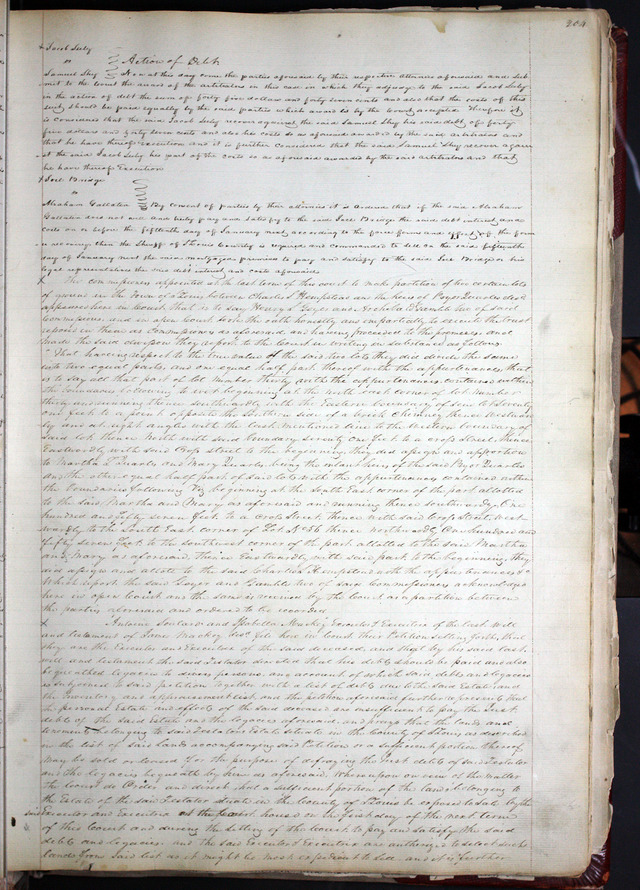 204
Jacob Seely
vs Action of Debt
Samuel Shy Now at this day come the parties aforesaid by their respective attornies aforesaid and sub-
mit to the Court the award of the arbitrators in this case in which they adjudge to the said Jacob Seely
in the action of debt the sum of forty five dollars and forty seven cents and also that the costs of this
suit should be paid equally by the said parties which award is by the Court accepted Therefore it
is considered that the said Jacob Seely recover against the said Samuel Shy his said debt of forty
five dollars and forty seven cents and also his costs so as aforesaid awarded by the said arbitrators and
that he have thereof execution and it is further considered that the said Samuel Shy recover against
the said Jacob Seely his part of the costs so as aforesaid awarded by the said arbitrators and that
he have thereof Execution
Joel Bridge
vs
Abraham Gallatin By consent of parties by their attornies it is ordered that if the said Abraham
Gallatin does not well and truly pay and satisfy to the said Joel Bridge the said debt interest and
costs on or before the fifteenth day of January next according to the force form and effect of the form
recovery then the Sheriff of St Louis County is required and commanded to sell on the said fifteenth
day of January next the said mortgaged premises to pay and satisfy to the said Joel Bridge or his
legal representatives the said debt interest and costs aforesaid
The commissioners appointed at the last term of this court to make partition of two certain lots
of ground in the Town of St Louis between Charles S Hempstead and the heirs of Pryor Quarles decd
appeared here in Court that is to say Henry S Geyer and Archibald Gamble two of said
Commissioners and in open Court
reposed in them as Commissioners as aforesaid and having proceeded to the premises and
made the said division they report to the Court in writing in substance as follows
"That having respect to the true value of the said two lots they did divide the same
into two equal parts, and one equal half part thereof with the appurtenances, that
is to say all that part of lot number thirty with the appurtenances contained within
the boundaries following to wit beginning at the north east corner of lot number
thirty and running thence southwardly with the Eastern boundary of said lot seventy
one feet to a point opposite the Southern side of a brick chimney thence westward-
ly and at right angles with the last mentioned line to the Western boundary of
said lot thence North with said boundary seventy one feet to a cross street thence
Eastwardly with said Cross street to the beginning, they did assign and apportion
to Martha I Quarles and Mary Quarles being the infant heirs of the said Pryor Quarles
and the other equal half part of said lots with the appurtenances contained within
the boundaries following beginning at the South East corner of the part allotted
to the said Martha and Mary as aforesaid and running thence southwardly One
hundred and fifty seven feet to a Cross Street thence with said Cross Street west-
wardly to the South East corner of lot No 86 thence northwardly One hundred and
fifty seven feet to the southwest corner of the part allotted to the said Martha
and Mary as aforesaid, thence Eastwardly with said part to the beginning they
did assign and allot to the said Charles S Hempstead with the appurtenances &c
Which report the said Geyer and Gamble two of said Commissioners acknowledged
here in open Court and the same is received by the Court as a partition between
the parties aforesaid and ordered to be recorded
Antoine Soulard and Isabella Mackay Executor & Executrix of the last will
and testament of James Mackay decd file here in Court their Petition setting forth that
they are the Executor and Executrix of the said deceased, and that by his said last
will and testament the said Testator directed that his debts should be paid and also
bequeathed legacies to divers persons an account of which said debts and legacies
is subjoined to said petition together with a list of debts due to the said Estate and
the Inventory and appraisement list and the petition aforesaid further represents that
the personal Estate and effects of the said deceased are insufficient to pay the just
debts of the said Estate and the legacies aforesaid, and prays that the lands and
tenements belonging to said Testators Estate situate in the County of St Louis as described
in the list of said lands accompanying said Petition or a sufficient portion thereof
may be sold or leased for the purpose of defraying the just debts of said Testator
and the legacies bequeathed by him as aforesaid. Whereupon on view of the matter
the Court do Order and direct that a sufficient portion of the lands belonging to
the Estate of the said Testator situate in the County of St Louis be exposed to sale by the
said Executor and Executrix at the Court house on the first day of the next term
of this Court and during the sitting of the Court to pay and satisfy the said
debts and legacies and the said Executor & Executrix are authorized to select such
lands from said list as it might be most expedient to sell and it is further